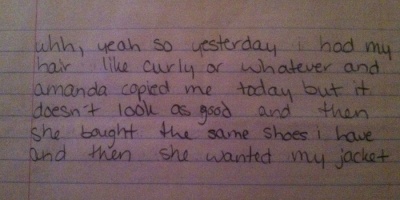 uhh, yeah so yesterday i had my
hair like curly or whatever and
amanda copied me today but it
doesn't look as good and then
she bought the same shoes i have
and then she wanted my jacket